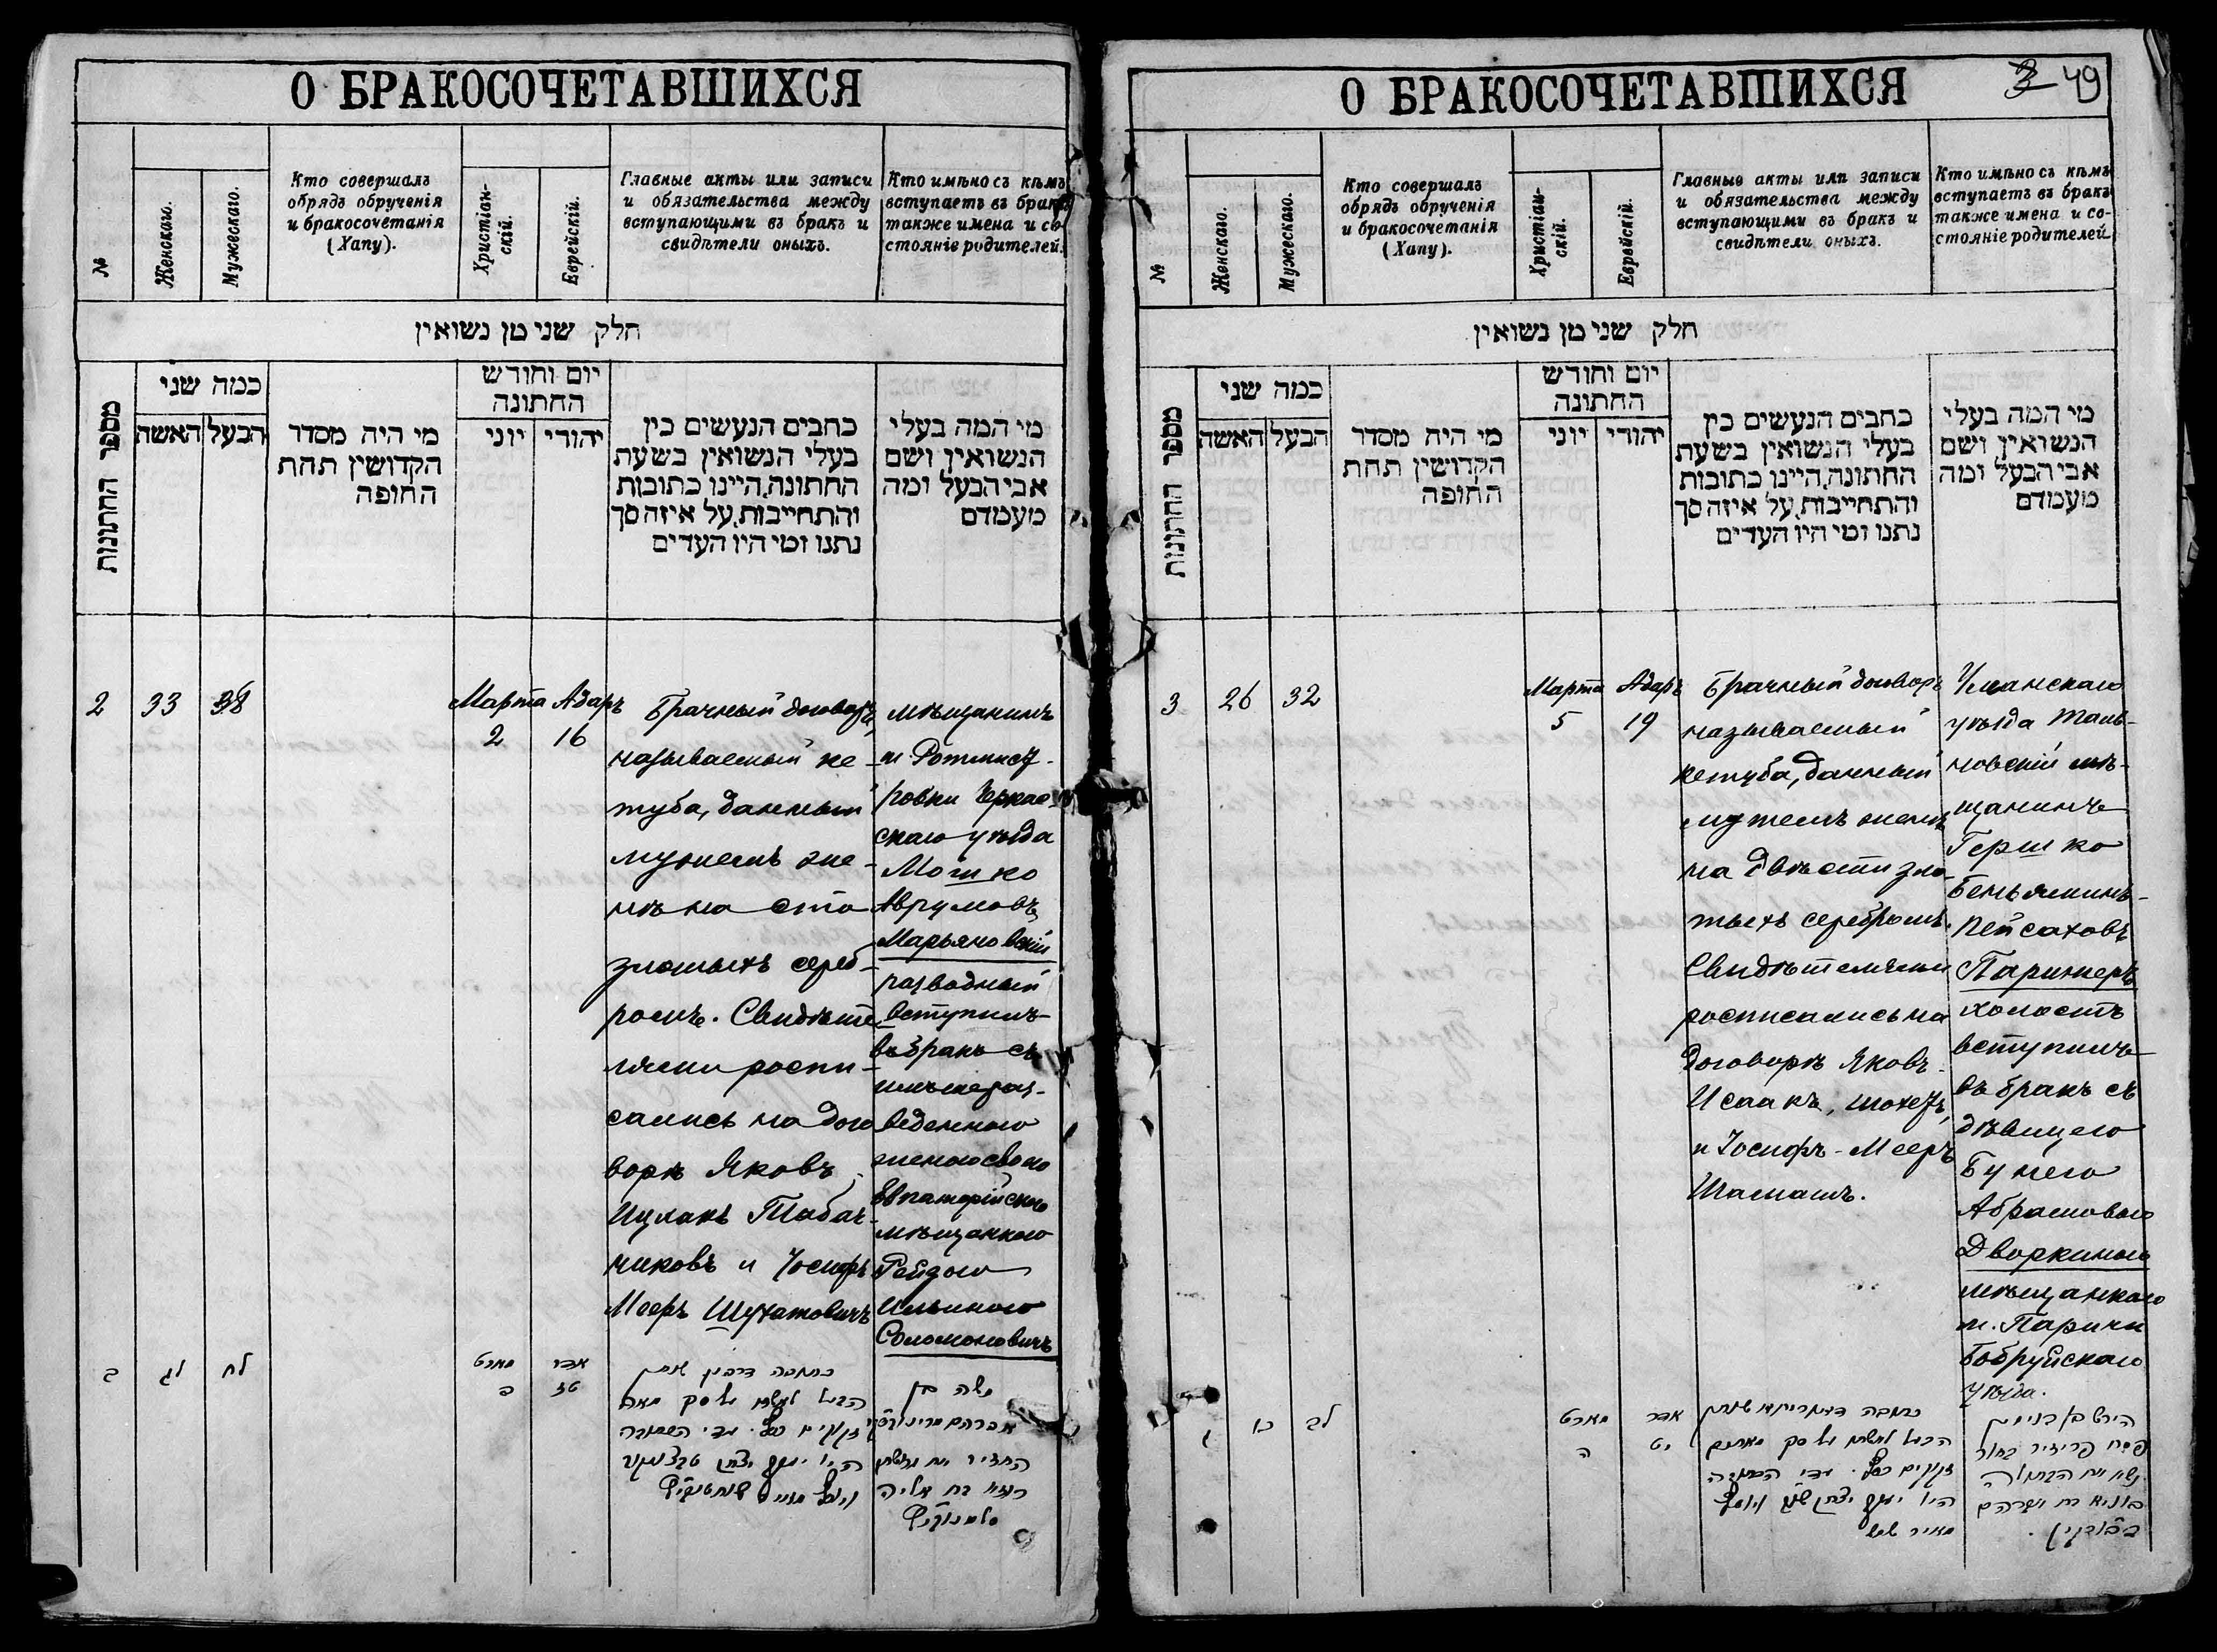 О БРАКОСОЧЕТАВШИХСЯ
№
Женскаго.
Мужескаго.
Кто совершалъ
обрядъ обрученія
и бракосочетанія
(Хапу).
Христіан-
скій.
Еврейскій.
Главные акты или записи
и обязательства между
вступающими въ бракъ и
свидѣтели оныхъ.
Кто имѣно съ кѣмъ
вступаетъ въ бракъ
также имена и со-
стояніе родителей.
חלק שני מן נשואין
מספר החתונות
כמה שני
האשה
הבעל
מי היה מסדר
הקדושין תחת
החופה
יום וחודש
החתונה
יוני
יהודי
כתבים הנעשים בין
בעלי הנשואין בשעת
החתונה, היינו כתובות
והתחייבות, על איזה סך
נתנו ומי היו העדים
מי המה בעלי
הנשואין ושם
אבי הבעל ומה
מעמדם
2
33
38
Марта
2
Адаръ
16
Брачный договоръ,
называемый ке-
туба, данный
мужемъ же-
нѣ на сто
злотыхъ сереб-
ромъ. Свидѣте-
лями роспи-
сались на дого
ворѣ Яковъ
Ицхакъ Табач-
никовъ и Іосифъ
Мееръ Шухатовичъ
мѣщанинъ
м. Ротмист-
ровки Черкас-
скаго уѣзда
Мошко
Аврумовъ
Марьяновскій
разводный
вступилъ
въ бракъ съ
имъ же раз-
веденною
женою своею
Евпаторійскою
мѣщанкою
Рейзою
Ильиною
Соломоновичъ
ב
לג
לח
מארט
ב
אדר
טז
כתובה דרכון שנתן
הבעל לאשתו על סך מאה
זקוקים כסף. עדי הכתובה
היו יעקב יצחק טבצניקוב
ויוסף מאיר שוחטוביץ
משה בן
אברהם מריינובסקי
החזיר את גרושתו
רייזא בת אליה
סלמונוביץ
О БРАКОСОЧЕТАВШИХСЯ
3 49
№
Женскаго.
Мужескаго.
Кто совершалъ
обрядъ обрученія
и бракосочетанія
(Хапу).
Христіан-
скій.
Еврейскій.
Главные акты или записи
и обязательства между
вступающими въ бракъ и
свидѣтели оныхъ.
Кто имѣно съ кѣмъ
вступаетъ въ бракъ
также имена и со-
стояніе родителей
חלק שני מן נשואין
מספר החתונות
כמה שני
האשה
הבעל
מי היה מסדר
הקדושין תחת
החופה
יום וחודש
החתונה
יוני
יהודי
כתבים הנעשים בין
בעלי הנשואין בשעת
החתונה, היינו כתובות
והתחייבות, על איזה סך
נתנו ומי היו העדים
מי המה בעלי
הנשואין ושם
אבי הבעל ומה
מעמדם
3
26
32
Марта
5
Адаръ
19
Брачный договоръ
называемый
кетуба, данный
мужемъ женѣ
на двѣсти зло-
тыхъ серебромъ.
Свидѣтелями
росписались на
договорѣ Яковъ-
Исаакъ, шохетъ,
и Іосифъ-Мееръ
Шамашъ.
Уманскаго
уѣзда Таль-
новскій мѣ-
щанинъ
Гершко
Беньяминъ-
Пейсаховъ
Парижеръ
холостъ
вступилъ
въ бракъ съ
дѣвицею
Бунею
Абрамовою
Дворкиною
мѣщанкою
м. Паричи
Бобруйскаго
уѣзда.
ג
כו
לב
מארט
ה
אדר
יט
כתובה דאורייתא שנתן
הבעל לאשתו על סך מאתים
זקוקים כסף. עדי הכתובה
היו יעקב יצחק שו״ב ויוסף
מאיר שמש
הירש בנימין
פסח פריזיר בחור
נשא את הבתולה
בוניא בת אברהם
דבורקין.